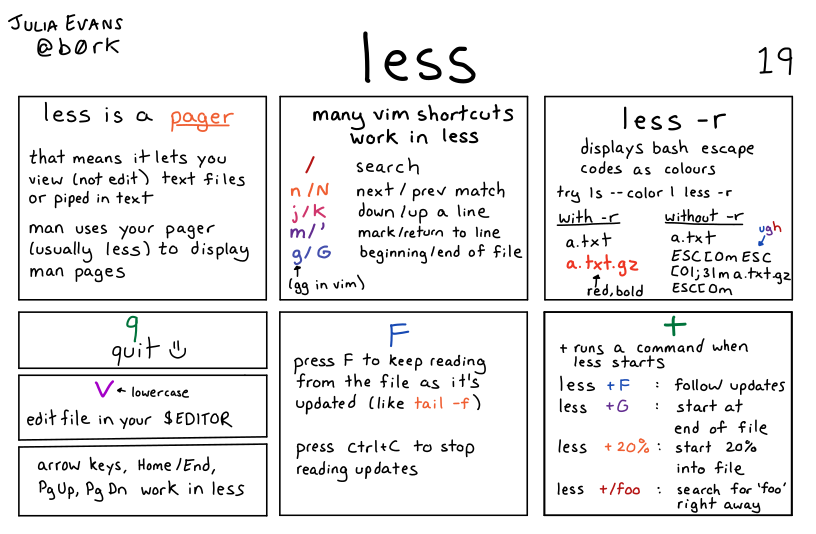 JULIA EVANS
@b0rk
less
19
less is a pager
that means it lets you
view (not edit) text files
or piped in text
man uses your pager
(usually less) to display
man pages
many vim shortcuts
work in less
/ search
n/N next/prev match
j/K down/up a line
m/' mark/return to line
g/G beginning/end of file
(gg in vim)
less -r
displays bash escape
codes as colours
try ls --color | less -r
with -r
a.txt
a.txt.gz
red, bold
without -r
a.txt
ugh
ESC[0m ESC
[01;31m a.txt.gz
ESC[0m
q
quit
V ← lowercase
edit file in your $EDITOR
arrow keys, Home/End,
PgUp, PgDn work in less
F
press F to keep reading
from the file as it's
updated (like tail -f)
press Ctrl+C to stop
reading updates
+
+ runs a command when
less starts
less +F : follow updates
less +G : start at
end of file
less +20% : start 20%
into file
less +/foo : search for 'foo'
right away